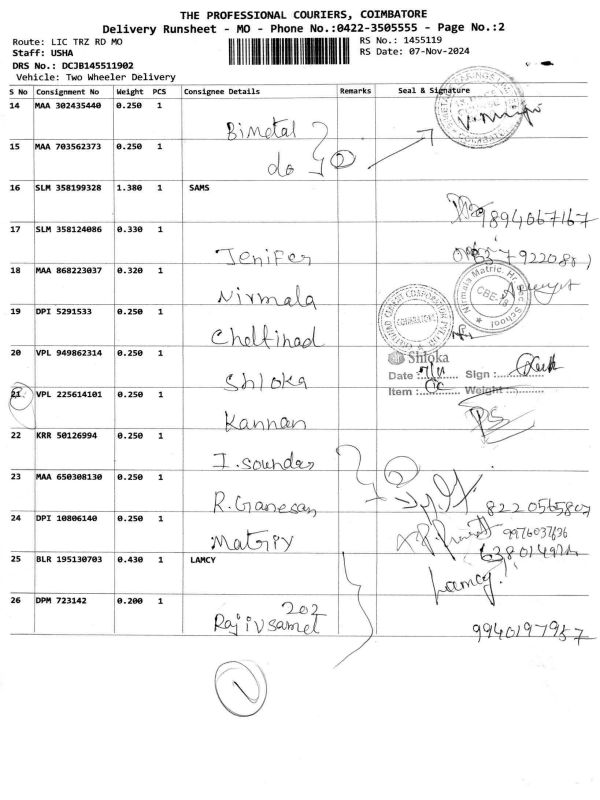 THE PROFESSIONAL COURIERS, COIMBATORE
Delivery Runsheet - MO - Phone No.:0422-3505555 - Page No.:2
Route: LIC TRZ RD MO RS No.: 1455119
Staff: USHA RS Date: 07-Nov-2024
DRS No.: DCJB145511902
Vehicle: Two Wheeler Delivery
S No Consignment No Weight PCS Consignee Details Remarks Seal & Signature
14 MAA 302435440 0.250 1
Bimetal
15 MAA 703562373 0.250 1
do 2
16 SLM 358199328 1.380 1 SAMS
9894067167
17 SLM 358124086 0.330 1
Jenifer
18 MAA 868223037 0.320 1
Nirmala Nirmala Matric. Hr. Sec School
CBE-18
19 DPI 5291533 0.250 1
Chettinad COIMBATORE
20 VPL 949862314 0.250 1
Shloka Shloka
Date : Sign :
Item : Weight :
21 VPL 225614101 0.250 1
Kannan
22 KRR 50126994 0.250 1
I. Sounder
23 MAA 650308130 0.250 1
R. Ganesan 2 8220565807
24 DPI 10806140 0.250 1
Matrix
25 BLR 195130703 0.430 1 LAMCY
Lamcy
26 DPM 723142 0.200 1
202
Rajivsamel 9940197957
1